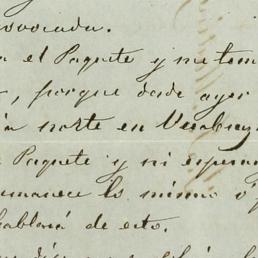 ovocada.
el Paquete y me tem
, porque desde ayer
norte en Veracruz
Paquete y ni esperan
manece lo mismo o
hablará de esto.